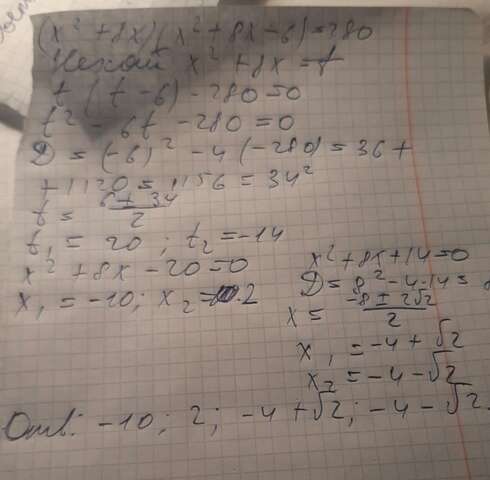 (x² + 8x)(x² + 8x - 6) = 280
Нехай x² + 8x = t
t (t - 6) - 280 = 0
t² - 6t - 280 = 0
D = (-6)² - 4 (-280) = 36 +
+ 1120 = 1156 = 34²
t = (6 ± 34)/2
t₁ = 20 ; t₂ = -14
x² + 8x - 20 = 0
x₁ = -10; x₂ = 2
x² + 8x + 14 = 0
D = 8² - 4·14 =
x = (-8 ± 2√2)/2
x₁ = -4 + √2
x₂ = -4 - √2
Отв: -10; 2; -4 + √2; -4 - √2.